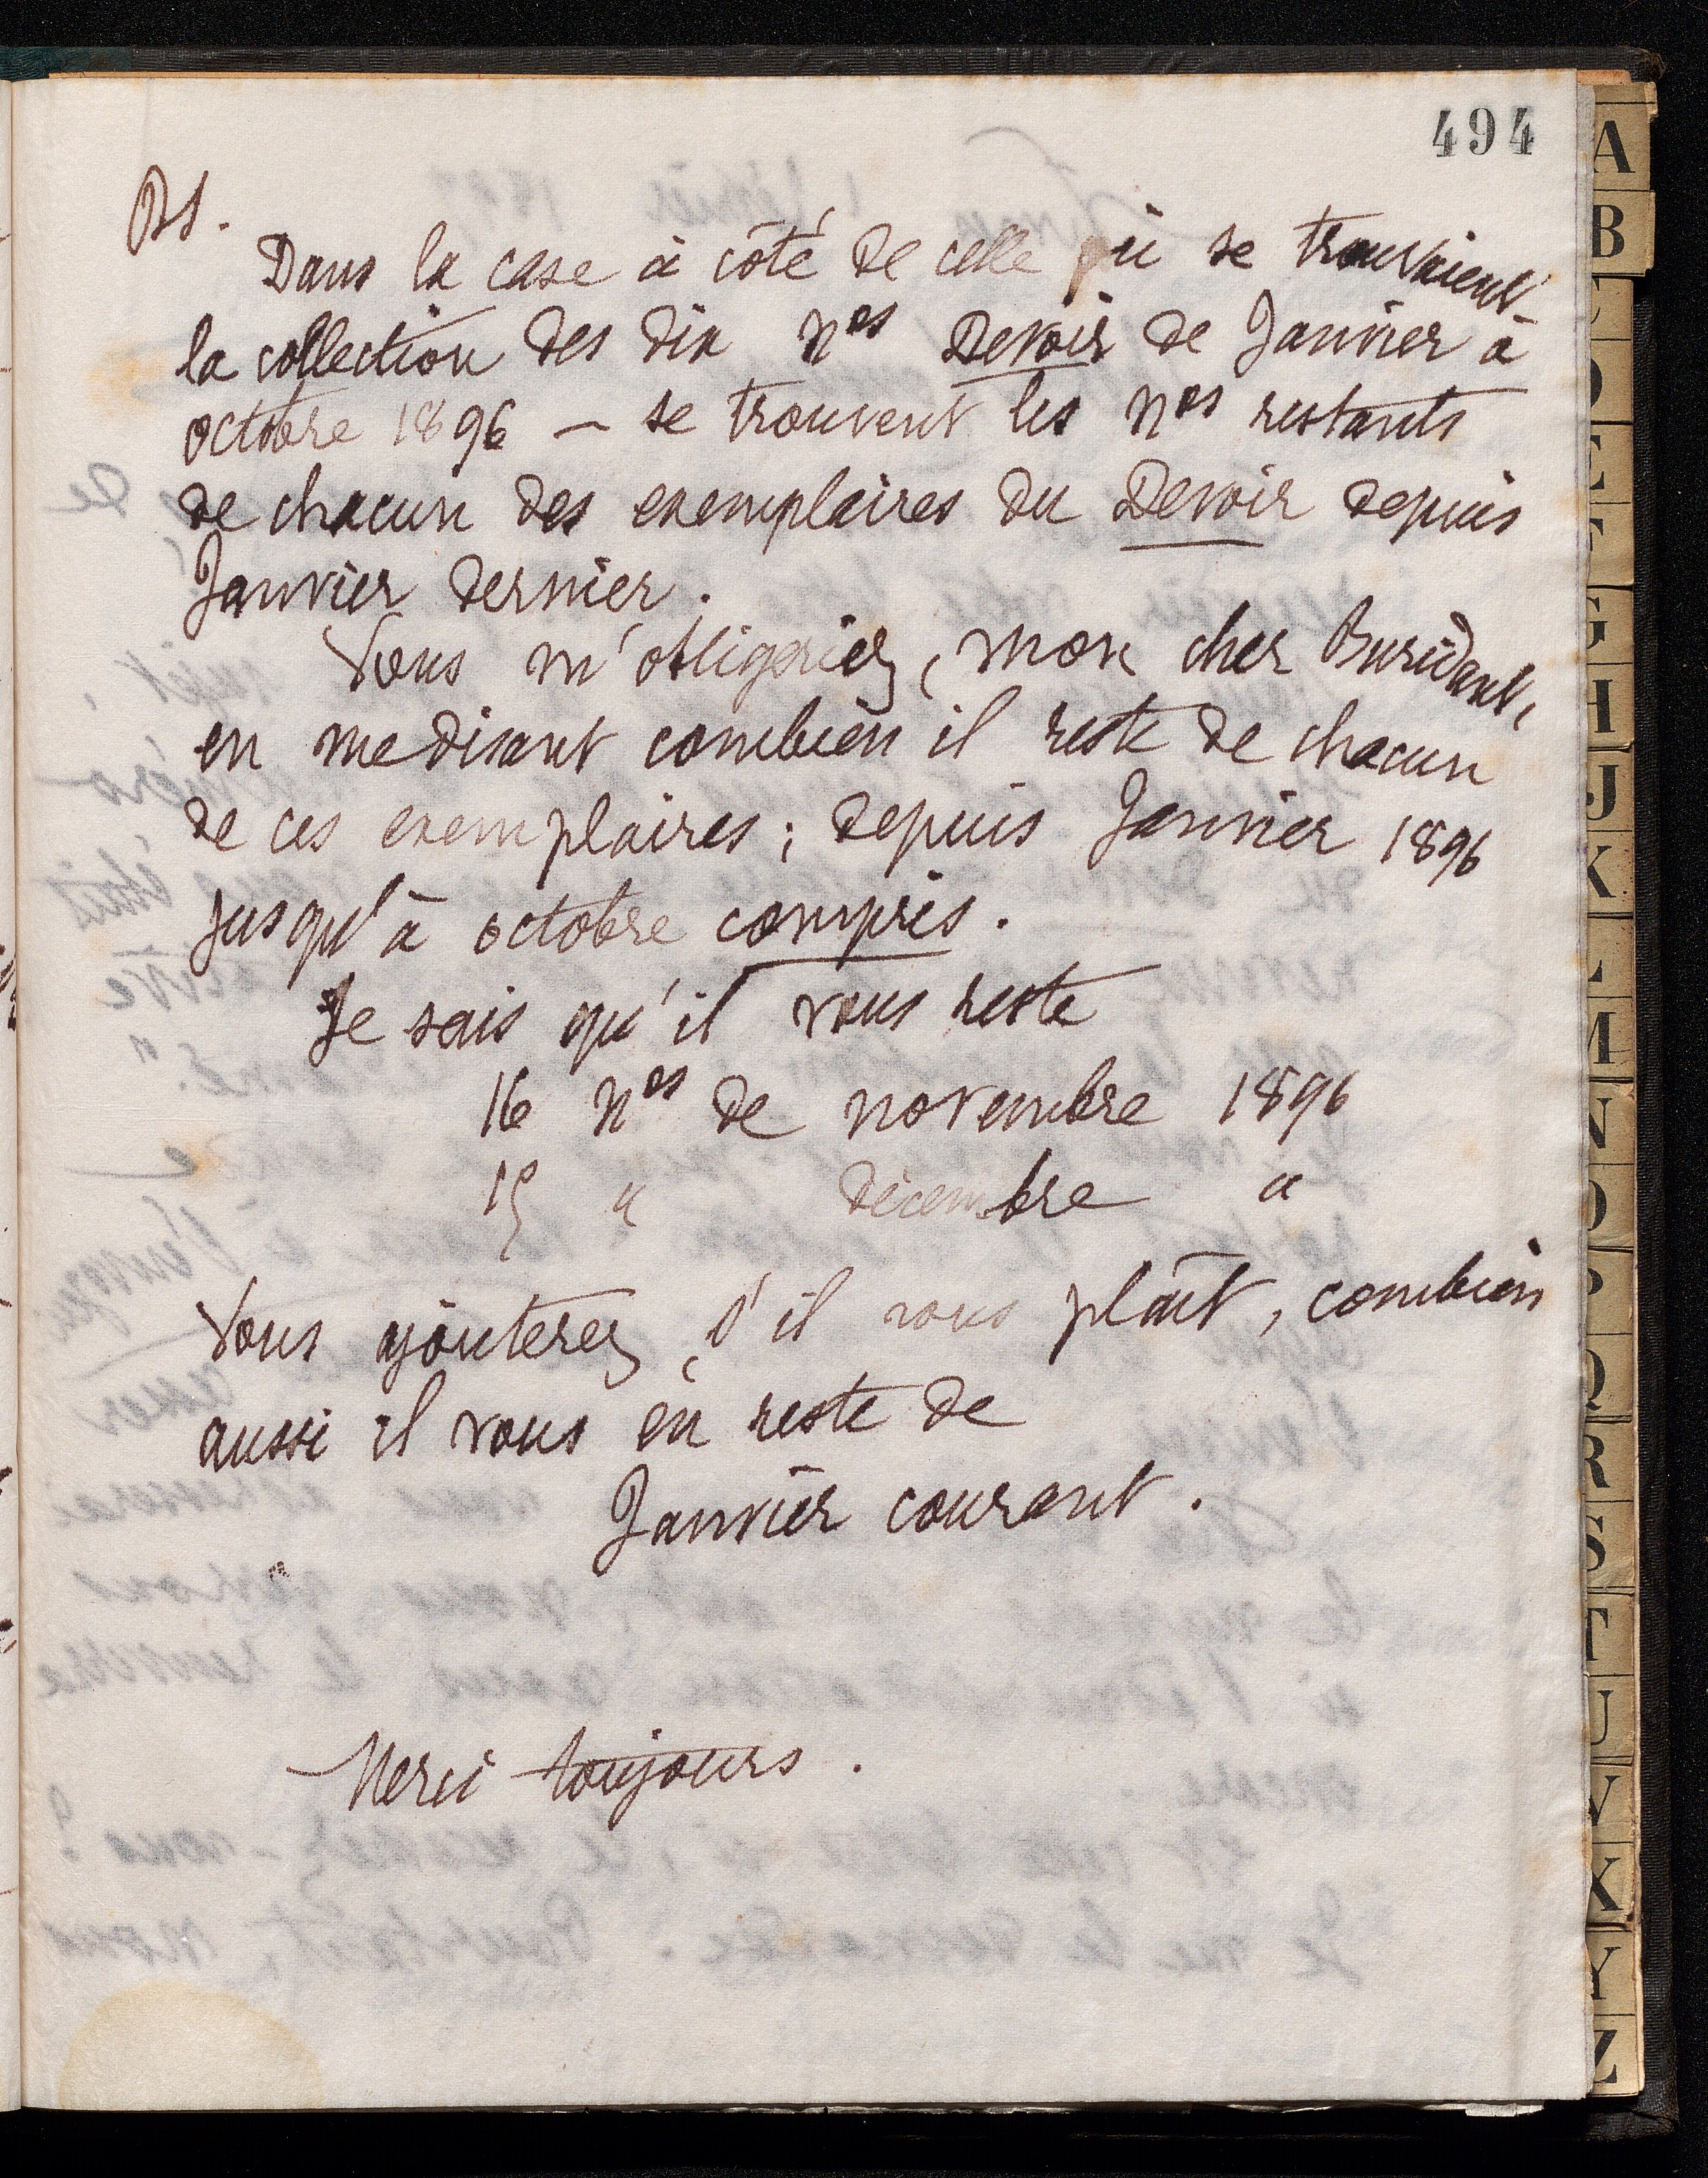 494
PS.
Dans la case à côté de celle où se trouvaient
la collection des dix nos Devoir de Janvier à
octobre 1896 – se trouvent les nos restants
de chacun des exemplaires du Devoir depuis
Janvier dernier.
Vous m'obligeriez, mon cher Buridant,
en me disant combien il reste de chacun
de ces exemplaires; depuis Janvier 1896
jusqu'à octobre compris.
Je sais qu'il vous reste
16 nos de novembre 1896
15 " décembre "
Vous ajouterez, s'il vous plaît, combien
aussi il vous en reste de
Janvier courant.
Merci toujours.
A
B
C
D
E
F
G
H
J
K
L
M
N
O
P
Q
R
S
T
U
V
X
Y
Z